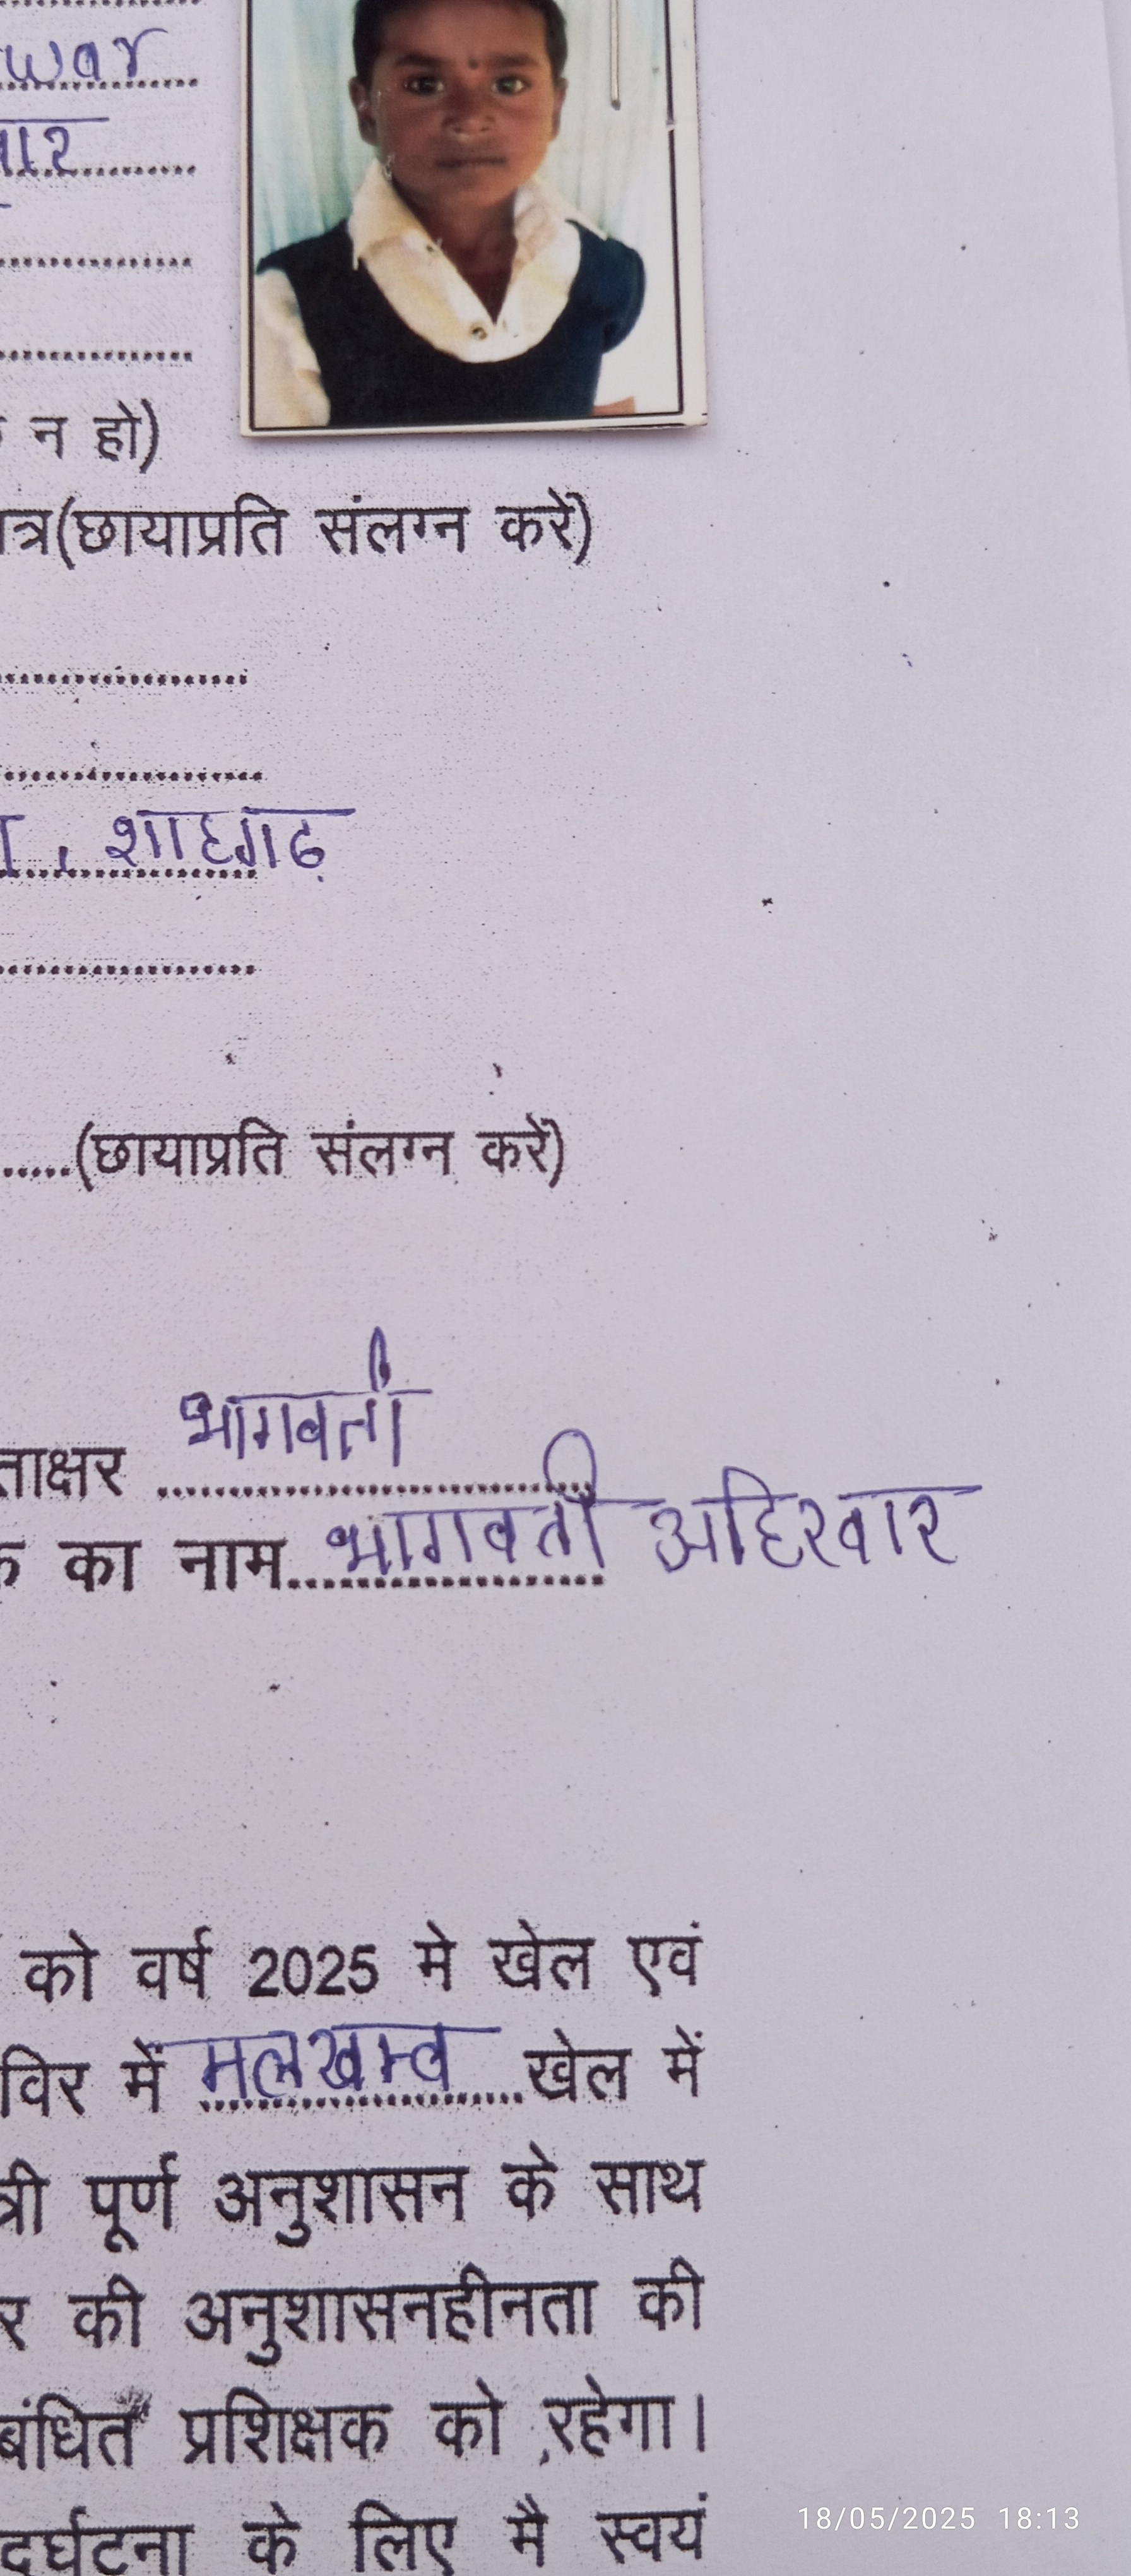 war
वार
न हो)
त्र(छायाप्रति संलग्न करें)
, शाहगढ़
.....(छायाप्रति संलग्न करें)
भागवती
ताक्षर ........................
का नाम भागवती अहिरवार
को वर्ष 2025 मे खेल एवं
विर में मलखम्ब खेल में
त्री पूर्ण अनुशासन के साथ
र की अनुशासनहीनता की
बंधित प्रशिक्षक को रहेगा।
दुर्घटना के लिए मै स्वयं
18/05/2025 18:13